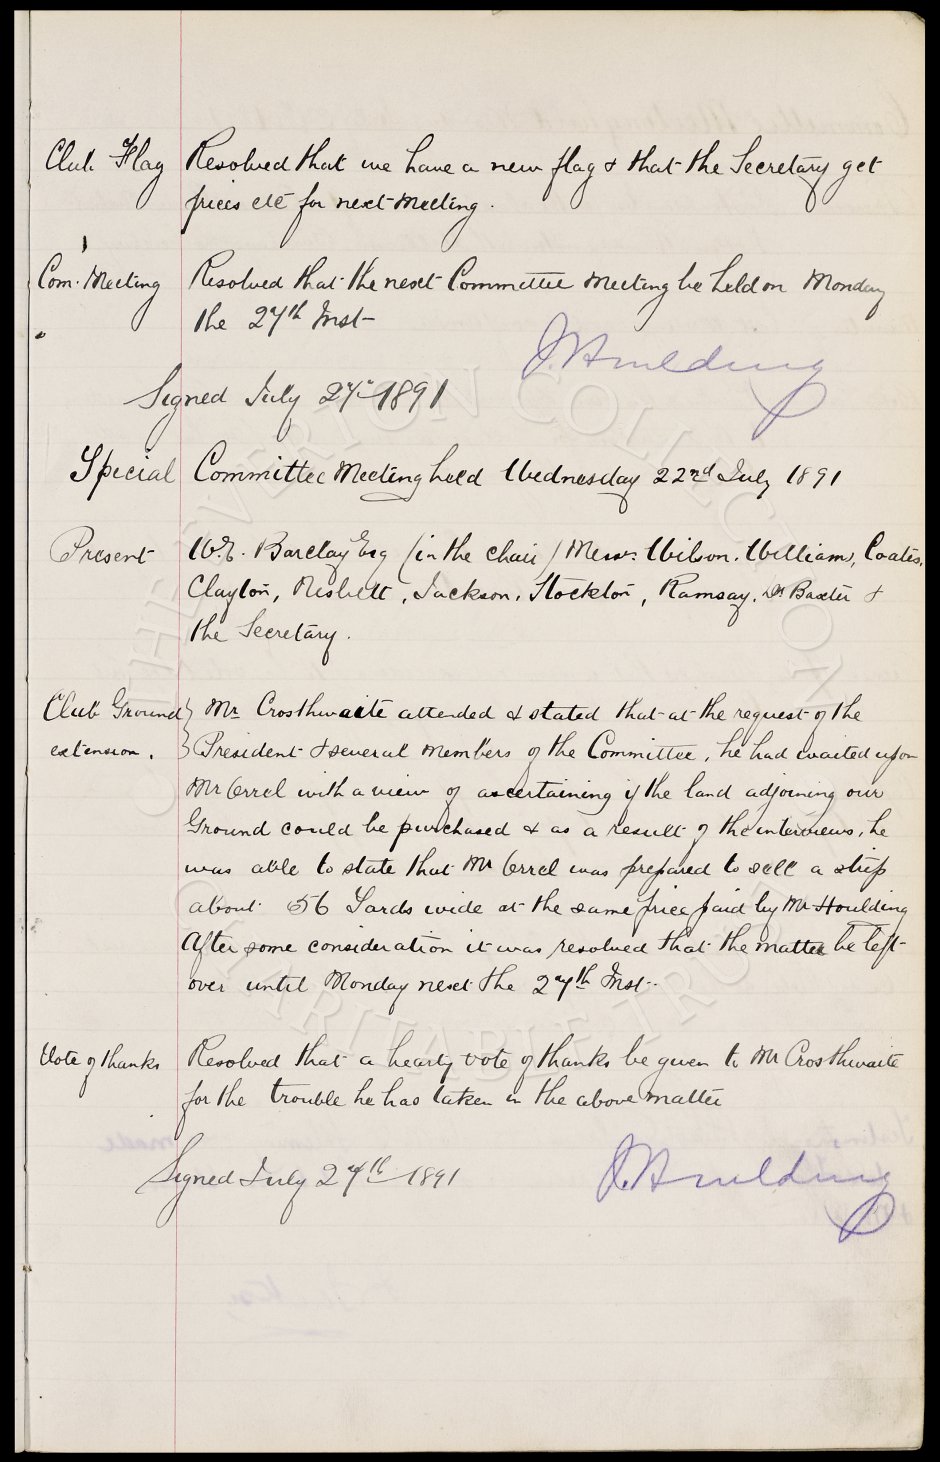 Club Flag Resolved that we have a new flag & that the Secretary get
prices etc for next Meeting.
Com. Meeting Resolved that the next Committee Meeting be held on Monday
the 27th Inst
J. Houlding
Signed July 27th 1891
Special Committee Meeting held Wednesday 22nd July 1891
Present W.E. Barclay Esq (in the chair) Messrs. Wilson, Williams, Coates,
Clayton, Nisbett, Jackson, Stockton, Ramsay, Dr Baxter &
the Secretary.
Club Ground } Mr Crosthwaite attended & stated that at the request of the
extension. } President & several Members of the Committee, he had waited upon
Mr Orrel with a view of ascertaining if the land adjoining our
Ground could be purchased & as a result of the interviews, he
was able to state that Mr Orrel was prepared to sell a strip
about 56 Yards wide at the same price paid by Mr Houlding
After some consideration it was resolved that the matter be left
over until Monday next the 27th Inst.
Vote of thanks Resolved that a hearty vote of thanks be given to Mr Crosthwaite
for the trouble he has taken in the above matter
Signed July 27th 1891 J. Houlding
THE EVERTON COLLECTION
CHARITABLE TRUST